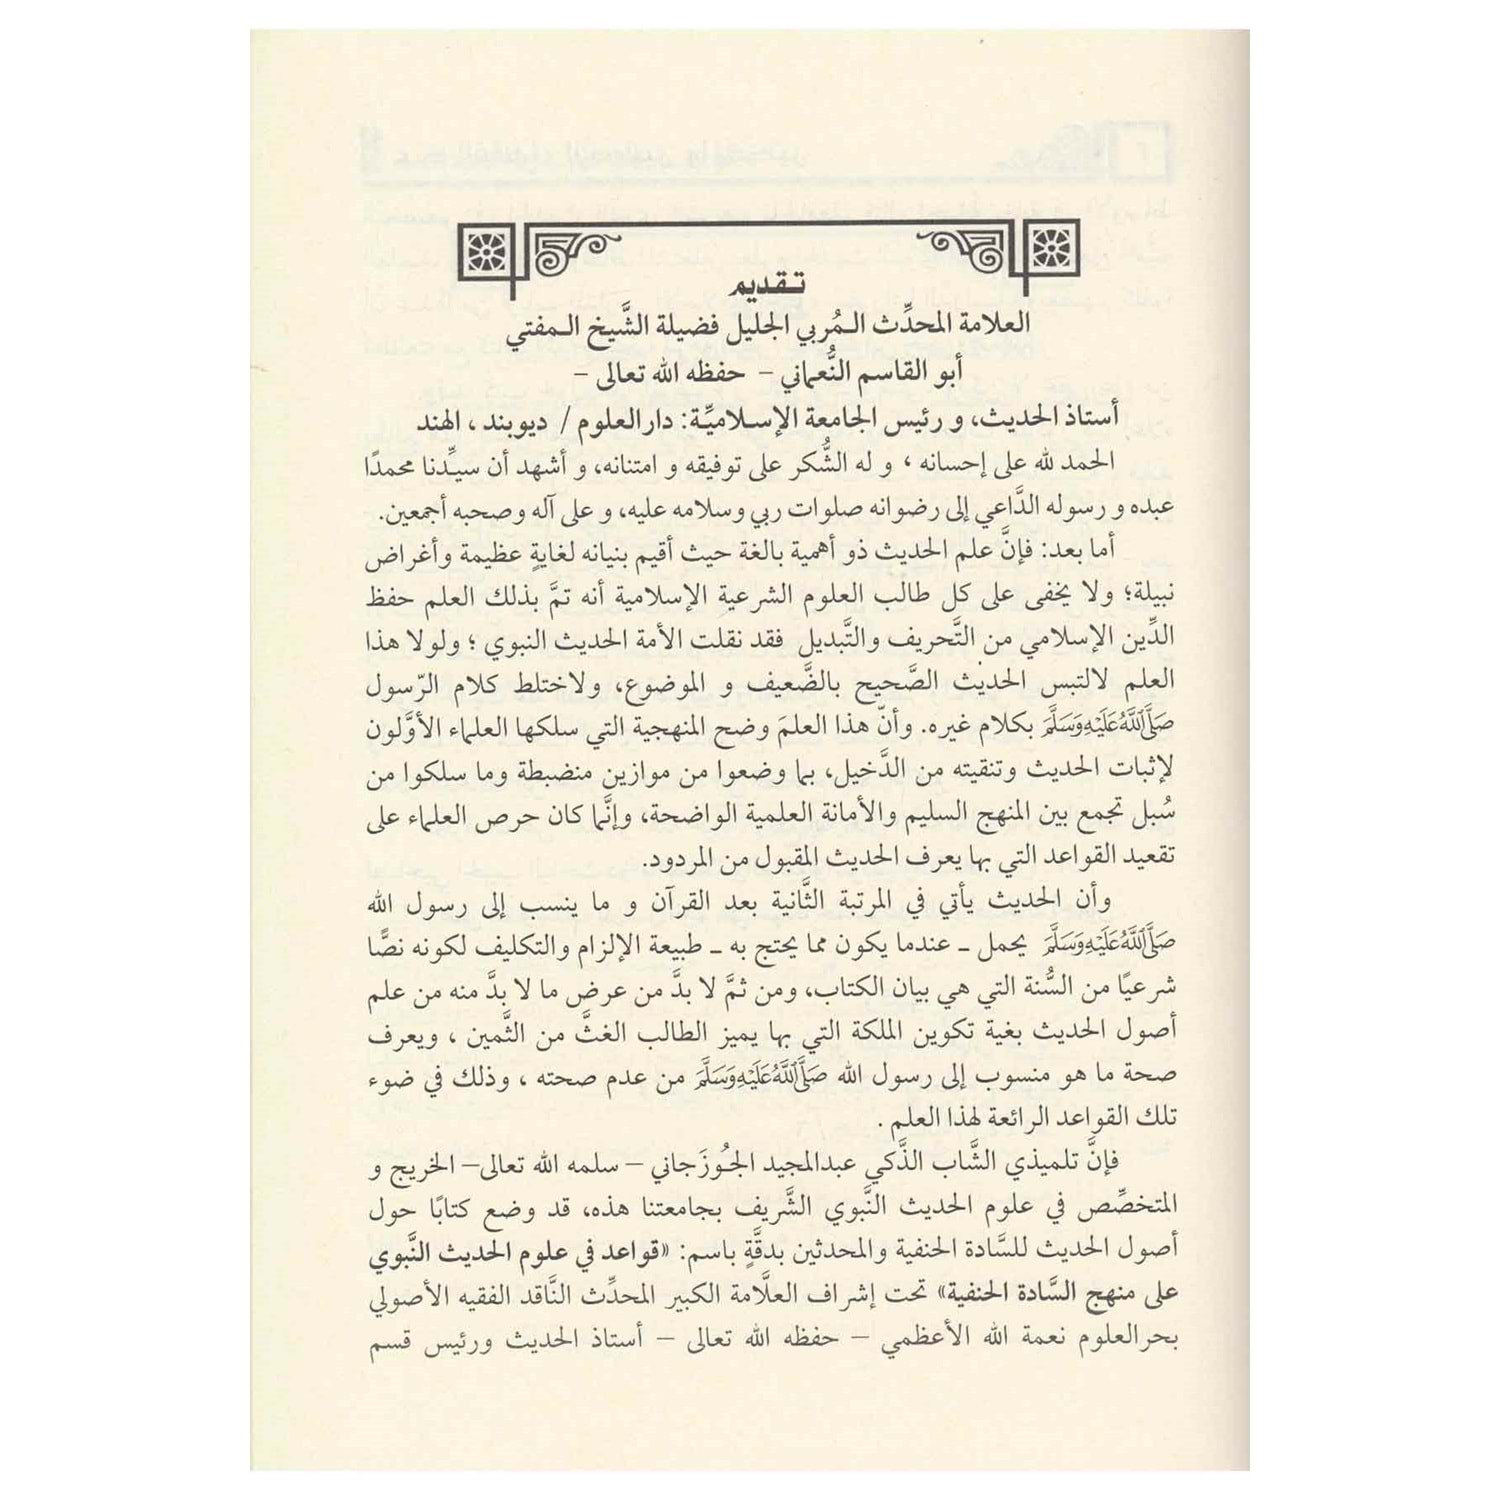 تـقديم
العلامة المحدِّث الـمُربي الجليل فضيلة الشَّيخ الـمفتي
أبو القاسم النُّعماني – حفظه الله تعالى –
أستاذ الحديث، و رئيس الجامعة الإسـلاميِّة: دارالعلوم / ديوبند ، الهند
الحمد لله على إحسانه ، و له الشُّكر على توفيقه و امتنانه، و أشهد أن سيِّدنا محمدًا
عبده و رسوله الدَّاعي إلى رضوانه صلوات ربي وسلامه عليه، و على آله وصحبه أجمعين.
أما بعد: فإنَّ علم الحديث ذو أهمية بالغة حيث أقيم بنيانه لغايةٍ عظيمة وأغراض
نبيلة؛ ولا يخفى على كل طالب العلوم الشرعية الإسلامية أنه تمَّ بذلك العلم حفظ
الدِّين الإسلامي من التَّحريف والتَّبديل فقد نقلت الأمة الحديث النبوي ؛ ولولا هذا
العلم لالتبس الحديث الصَّحيح بالضَّعيف و الموضوع، ولاختلط كلام الرّسول
صَلَّى اللَّهُ عَلَيْهِ وَسَلَّمَ بكلام غيره. وأنّ هذا العلمَ وضح المنهجية التي سلكها العلماء الأوَّلون
لإثبات الحديث وتنقيته من الدَّخيل، بما وضعوا من موازين منضبطة وما سلكوا من
سُبل تجمع بين المنهج السليم والأمانة العلمية الواضحة، وإنَّما كان حرص العلماء على
تقعيد القواعد التي بها يعرف الحديث المقبول من المردود.
وأن الحديث يأتي في المرتبة الثَّانية بعد القرآن و ما ينسب إلى رسول الله
صَلَّى اللَّهُ عَلَيْهِ وَسَلَّمَ يحمل ـ عندما يكون مما يحتج به ـ طبيعة الإلزام والتكليف لكونه نصًّا
شرعيًا من السُّنة التي هي بيان الكتاب، ومن ثمَّ لا بدَّ من عرض ما لا بدَّ منه من علم
أصول الحديث بغية تكوين الملكة التي بها يميز الطالب الغثَّ من الثَّمين ، ويعرف
صحة ما هو منسوب إلى رسول الله صَلَّى اللَّهُ عَلَيْهِ وَسَلَّمَ من عدم صحته ، وذلك في ضوء
تلك القواعد الرائعة لهذا العلم .
فإنَّ تلميذي الشَّاب الذَّكي عبدالمجيد الجُـوزَجاني – سلمه الله تعالى– الخريج و
المتخصِّص في علوم الحديث النَّبوي الشَّريف بجامعتنا هذه، قد وضع كتابًا حول
أصول الحديث للسَّادة الحنفية والمحدثين بدقَّةٍ باسم: «قواعد في علوم الحديث النَّبوي
على منهج السَّادة الحنفية» تحت إشراف العلَّامة الكبير المحدِّث النَّاقد الفقيه الأصولي
بحرالعلوم نعمة الله الأعظمي – حفظه الله تعالى – أستاذ الحديث ورئيس قسم